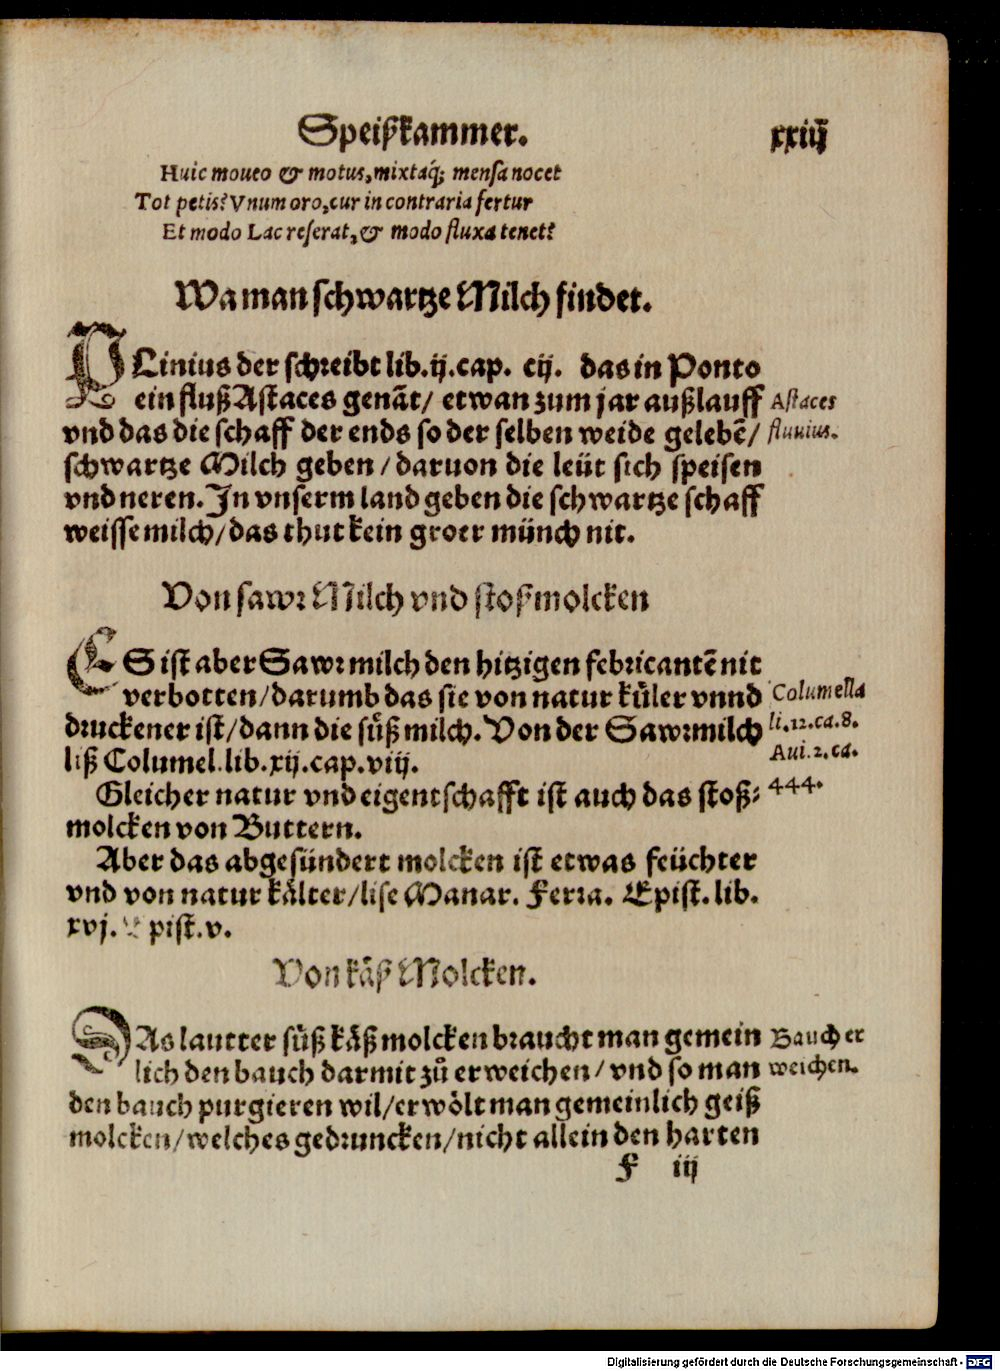 Speißkammer.
xxiij
Huic moueo & motus, mixtaq́; mensa nocet
Tot petis? Vnum oro, cur in contraria fertur
Et modo Lac reserat, & modo fluxa tenet?
Wa man schwartze Milch findet.
PLinius der schreibt lib. ij. cap. cij. das in Ponto
ein fluß Astaces genãt / etwan zum jar außlauff
Astaces
vnd das die schaff der ends so der selben weide gelebẽ /
fluuius.
schwartze Milch geben / daruon die leüt sich speisen
vnd neren. In vnserm land geben die schwartze schaff
weisse milch / das thut kein groer münch nit.
Von sawr Milch vnd stoßmolcken
ES ist aber Sawrmilch den hitzigen febricantẽ nit
verbotten / darumb das sie von natur kůler vnnd
Columella
druckener ist / dann die sůß milch. Von der Sawrmilch
li. 12. ca. 8.
liß Columel. lib. xij. cap. viij.
Aui. 2. ca.
Gleicher natur vnd eigentschafft ist auch das stoß⸗
444.
molcken von Buttern.
Aber das abgesündert molcken ist etwas feüchter
vnd von natur kålter / lise Manar. Ferra. Epist. lib.
xvj. Epist. v.
Von kåß Molcken.
DAs lautter sůß kåß molcken braucht man gemein
Bauch er
lich den bauch darmit zů erweichen / vnd so man
weichen.
den bauch purgieren wil / erwölt man gemeinlich geiß
molcken / welches gedruncken / nicht allein den harten
F iij
Digitalisierung gefördert durch die Deutsche Forschungsgemeinschaft - DFG